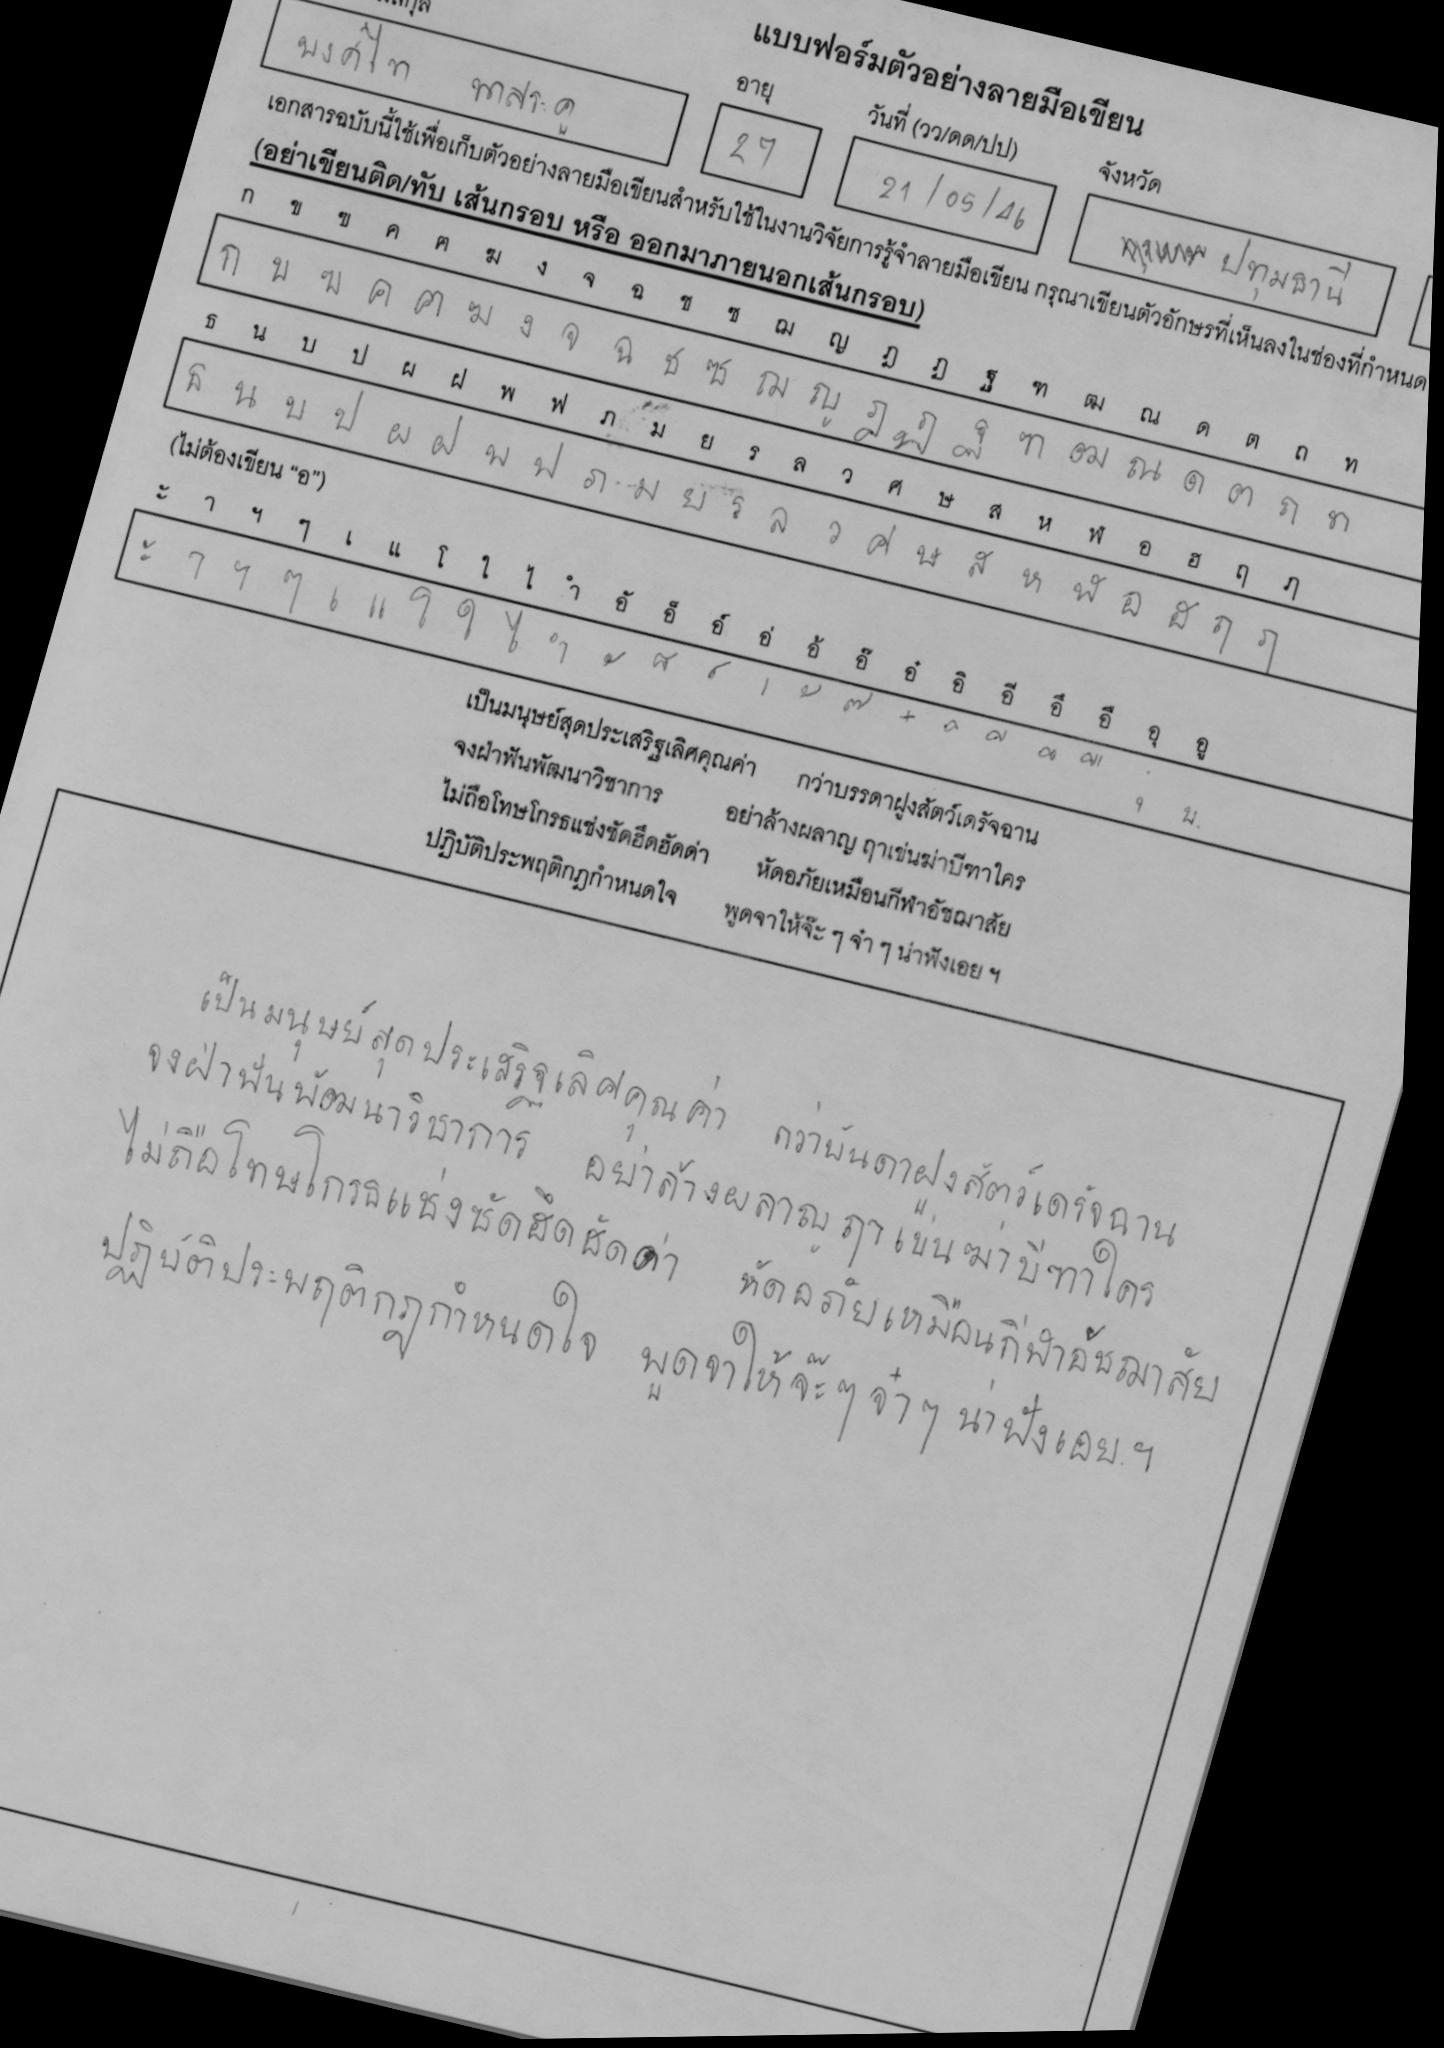 แบบฟอร์มตัวอย่างลายมือเขียน
อายุ วันที่ (วว/ดด/ปป) จังหวัด
27 21/05/46 ปทุมธานี
เอกสารฉบับนี้ใช้เพื่อเก็บตัวอย่างลายมือเขียนสำหรับใช้ในงานวิจัยการรู้จำลายมือเขียน กรุณาเขียนตัวอักษรที่เห็นลงในช่องที่กำหนด
(อย่าเขียนติด/ทับ เส้นกรอบ หรือ ออกมาภายนอกเส้นกรอบ)
ก ข ฃ ค ฅ ฆ ง จ ฉ ช ซ ฌ ญ ฎ ฏ ฐ ฑ ฒ ณ ด ต ถ ท
ก ข ฃ ค ฅ ฆ ง จ ฉ ช ซ ฌ ญ ฎ ฏ ฐ ฑ ฒ ณ ด ต ถ ท
ธ น บ ป ผ ฝ พ ฟ ภ ม ย ร ล ว ศ ษ ส ห ฬ อ ฮ ฤ ฦ
ธ น บ ป ผ ฝ พ ฟ ภ ม ย ร ล ว ศ ษ ส ห ฬ อ ฮ ฤ ฦ
(ไม่ต้องเขียน "อ")
ะ า ฯ ๆ เ แ โ ใ ไ ำ อั อ็ อ์ อ่ อ้ อ๊ อ๋ อิ อี อึ อื อุ อู
ะ า ฯ ๆ เ แ โ ใ ไ ำ ั ็ ์ ่ ้ ๊ ๋ ิ ี ึ ื ุ ู
เป็นมนุษย์สุดประเสริฐเลิศคุณค่า กว่าบรรดาฝูงสัตว์เดรัจฉาน
จงฝ่าฟันพัฒนาวิชาการ อย่าล้างผลาญ ฤาเข่นฆ่าบีฑาใคร
ไม่ถือโทษโกรธแช่งซัดฮึดฮัดด่า หัดอภัยเหมือนกีฬาอัชฌาสัย
ปฏิบัติประพฤติกฎกำหนดใจ พูดจาให้จ๊ะ ๆ จ๋า ๆ น่าฟังเอย ฯ
เป็นมนุษย์สุดประเสริฐเลิศคุณค่า กว่าบันดาฝูงสัตว์เดรัจฉาน
จงฝ่าฟันพัฒนาวิชาการ อย่าล้างผลาญ ฤาเข่นฆ่าบีฑาใคร
ไม่ถือโทษโกรธแช่งซัดฮึดฮัดด่า หัดอภัยเหมือนกีฬาอัชฌาสัย
ปฏิบัติประพฤติกฎกำหนดใจ พูดจาให้จ๊ะๆ จ๋าๆ น่าฟังเอย ฯ